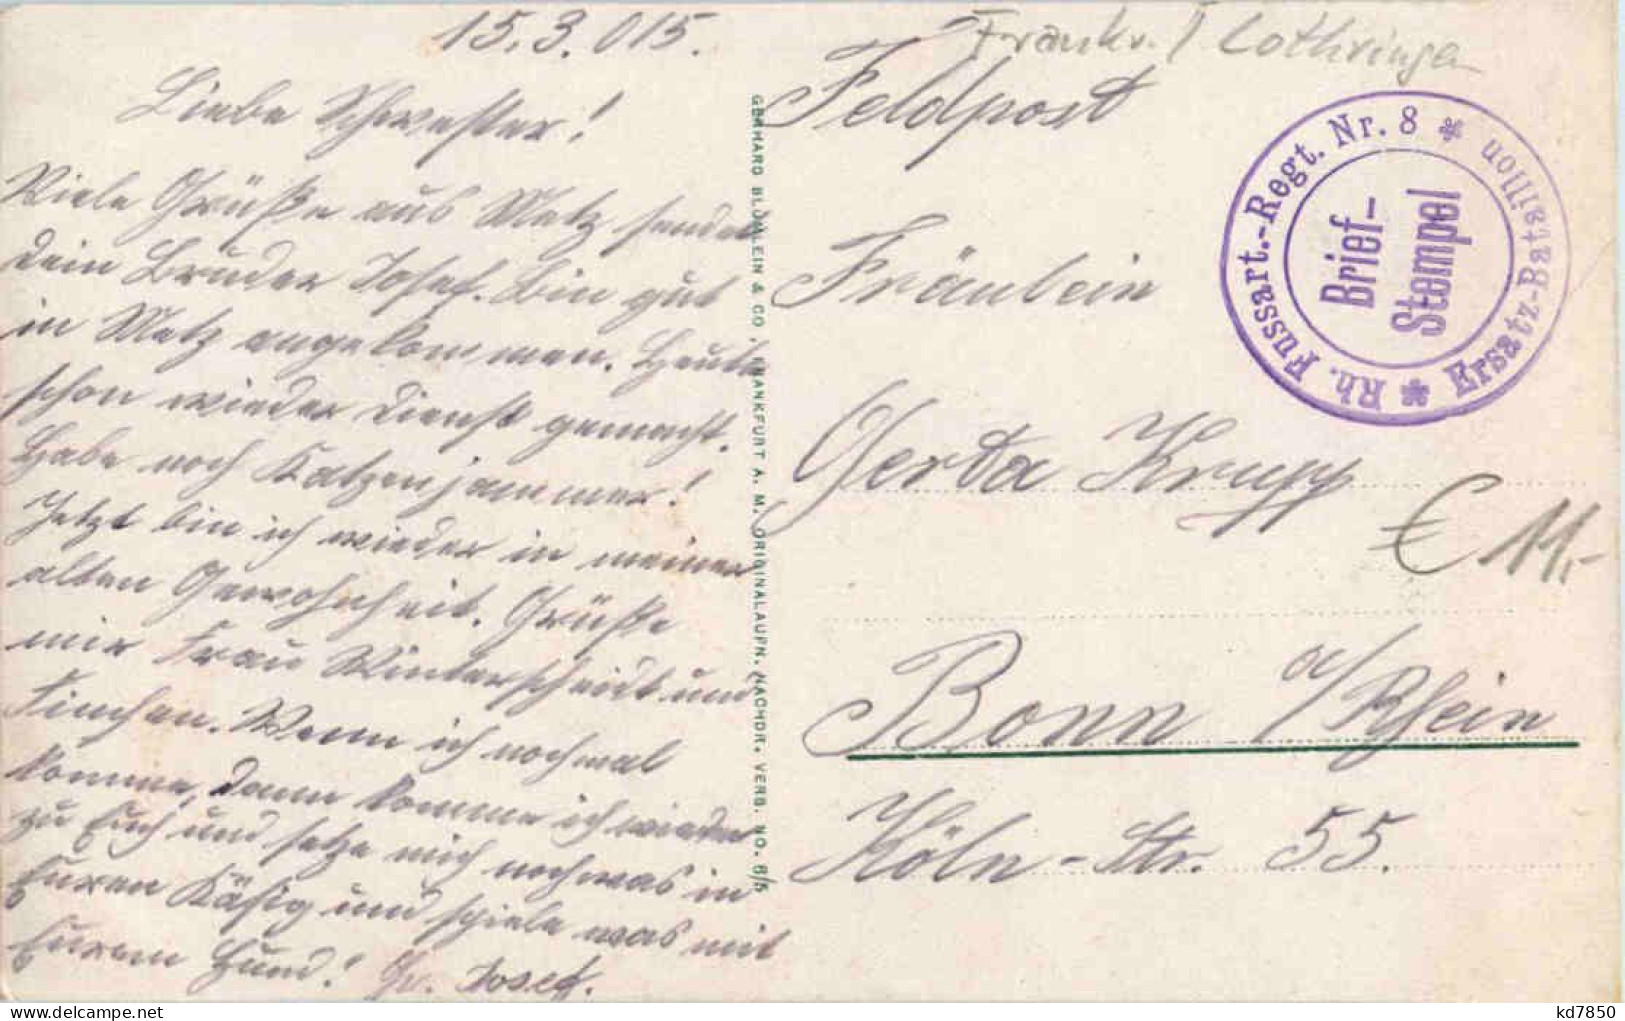 15.3.015.
Liebe Schwester!
Viele Grüße aus Metz sendet
dein Bruder Josef. Bin gut
in Metz angekommen. Heute
schon wieder Dienst gemacht.
Habe noch Katzenjammer!
Jetzt bin ich wieder in meiner
alten Gewohnheit. Grüße
mir Frau Winterscheidt und
Finchen. Wenn ich nochmal
komme, dann komme ich wieder
zu Euch und setze mich nochwas in
Euren Käfig und spiele was mit
Eurem Hund! Gr. Josef.
GERHARD BLÜMLEIN & CO., FRANKFURT A. M. ORIGINALAUFN. NACHDR. VERB. NO. 6/5
Frankr. / Lothringen
Feldpost
Rh. Fussart.-Regt. Nr. 8 * Ersatz-Bataillon *
Brief-
Stempel
Fräulein
Gerda Krupp
€ 11,-
Bonn a/Rhein
Köln-Str. 55.
kd7850